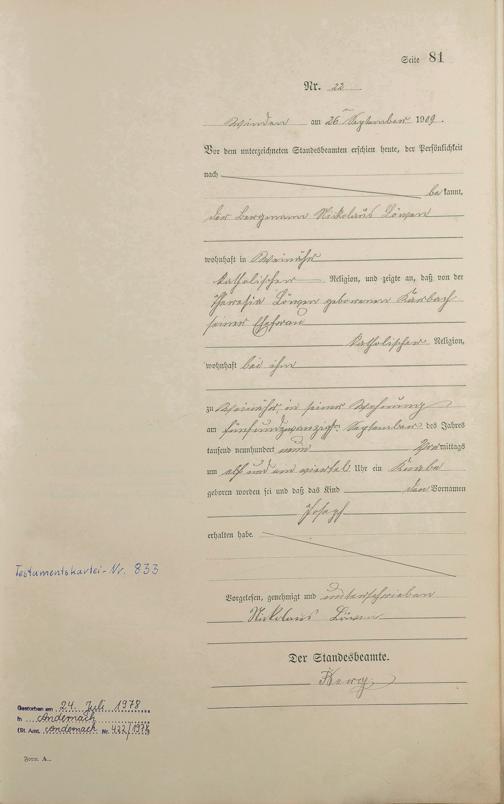 Seite 81
Nr. 22
Winden am 26 September 1909.
Vor dem unterzeichneten Standesbeamten erschien heute, der Persönlichkeit
nach
bekannt,
der Bergmann Nikolaus Löwen
wohnhaft in Weinähr
katholischer Religion, und zeigte an, daß von der
Theresia Löwen geborenen
seiner Ehefrau
katholischer Religion,
wohnhaft bei ihm
zu Weinähr in seiner Wohnung
am fünfundzwanzigsten September des Jahres
tausend neunhundert neun Vormittags
um elf und ein viertel Uhr ein Knabe
geboren worden sei und daß das Kind den Vornamen
Josef
erhalten habe.
Testamentskartei-Nr. 833
Vorgelesen, genehmigt und unterschrieben
Nikolaus Löwen
Der Standesbeamte.
Gestorben am 24. Juli 1978
in Andernach
(St. Amt. Andernach Nr. 422/1978
Form. A.